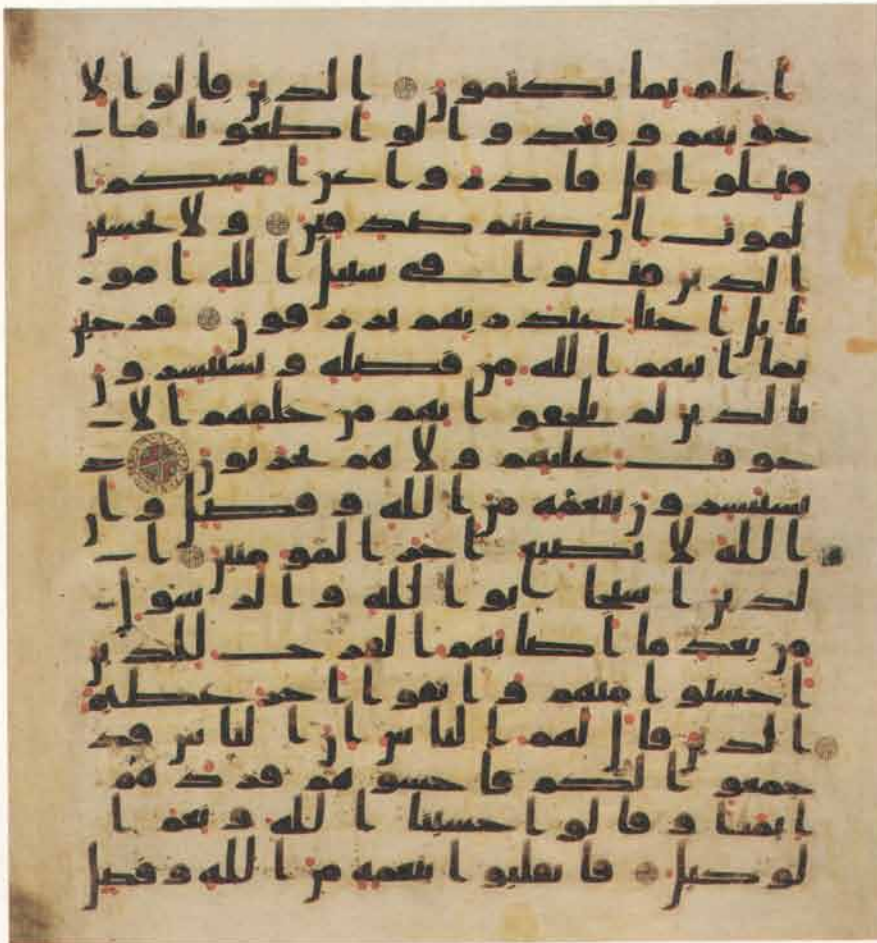 اعلم بما يكتمون الذين قالوا لا
خونهم وقعدوا لو اطعونا ما
قتلوا قل فادروا عن انفسكم ا
لموت ان كنتم صدقين ولا تحسبن
الذين قتلوا في سبيل الله امو
تا بل احيا عند ربهم يرزقون فرحين
بما اتيهم الله من فضله ويستبشرون
بالذين لم يلحقوا بهم من خلفهم الا
خوف عليهم ولا هم يحزنون
يستبشرون بنعمه من الله وفضل وان
الله لا يضيع اجر المومنين ا
لذين استجابوا لله والرسول
من بعد ما اصابهم القرح للذين
احسنوا منهم واتقوا اجر عظيم
الذين قال لهم الناس ان الناس قد
جمعوا لكم فاخشوهم فزادهم
ايمنا وقالوا حسبنا الله ونعم ا
لوكيل فانقلبوا بنعمه من الله وفضل